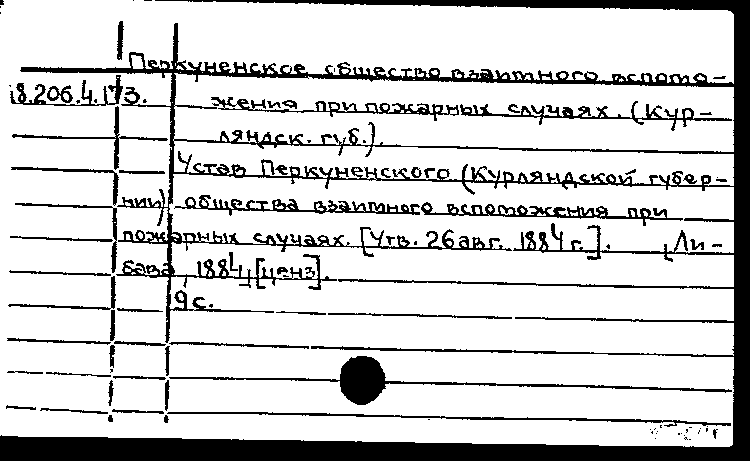 Перкуненское общество взаимного вспомо-
18.206.4.173. жения при пожарных случаях. (Кур-
ляндск. губ.).
Устав Перкуненского (Курляндской губер-
нии) общества взаимного вспоможения при
пожарных случаях. [Утв. 26 авг. 1884 г.]. [Ли-
бава, 1884], [ценз].
9 с.